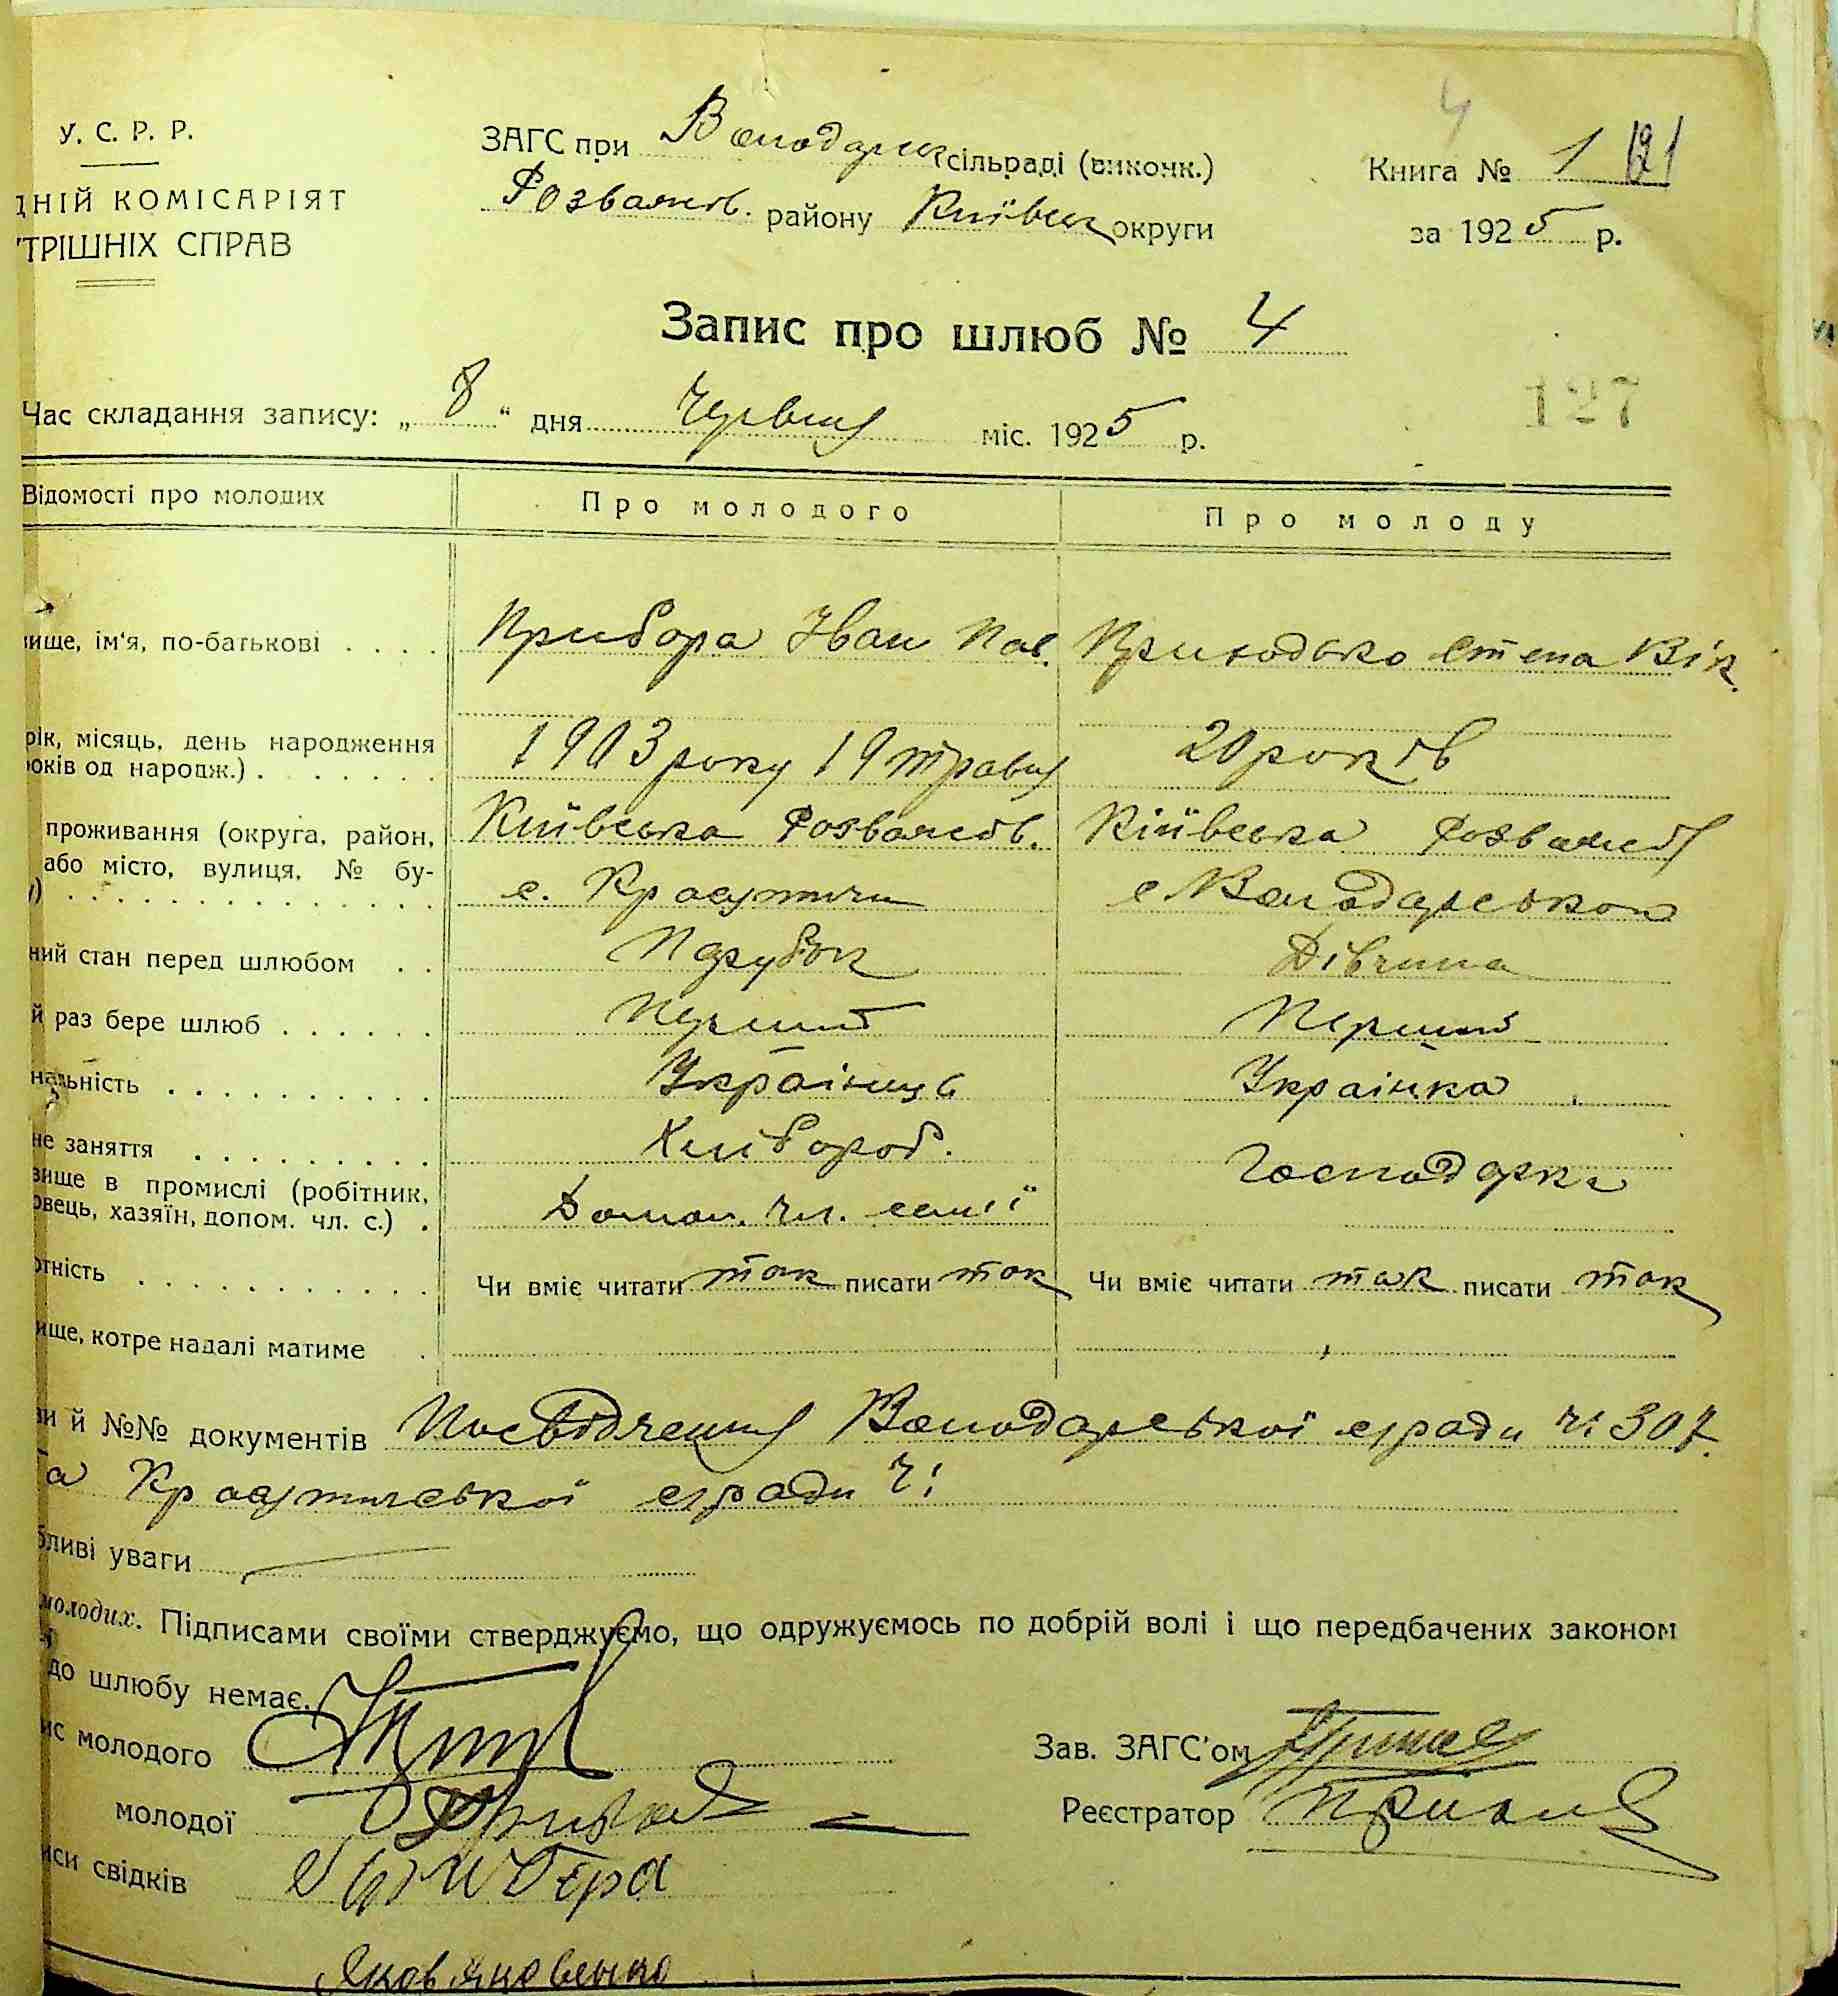 У. С. Р. Р.
ДНІЙ КОМІСАРІЯТ
ТРІШНІХ СПРАВ
ЗАГС при Володарськ сільраді (виконк.)
Розважів. району Київськ округи
4
Книга № 1 121
за 1925 р.
Запис про шлюб № 4
Час складання запису: „8“ дня Червня міс. 1925 р.
127
Відомості про молодих Про молодого Про молоду
вище, ім'я, по-батькові . . . . Прибора Іван Пав. Приходько Степа Вік.
рік, місяць, день народження
років од народж.) . . . . . . . 1903 року 19 травня 20 років
проживання (округа, район, Київська Розважів. Київська Розважів
або місто, вулиця, № бу-
) . . . . . . . . . . . . . . с. Красятичи с Володарською
ний стан перед шлюбом . . Парубок Дівчина
й раз бере шлюб . . . . . . Перший Перший
нальність . . . . . . . . . . Українець Українка
не заняття . . . . . . . . . Хлібороб. Господарка
вище в промислі (робітник,
овець, хазяїн, допом. чл. с.) . Допом. чл. семії
отність . . . . . . . . . . . Чи вміє читати так писати так Чи вміє читати так писати так
ище, котре надалі матиме .
ви й №№ документів Посвідчення Володарської с/ради Ч: 307.
та Красятицької с/ради Ч:
бливі уваги
молодих. Підписами своїми стверджуємо, що одружуємось по добрій волі і що передбачених законом
до шлюбу немає.
ис молодого
Зав. ЗАГС'ом
молодої
Реєстратор
иси свідків
Яков Яковенко